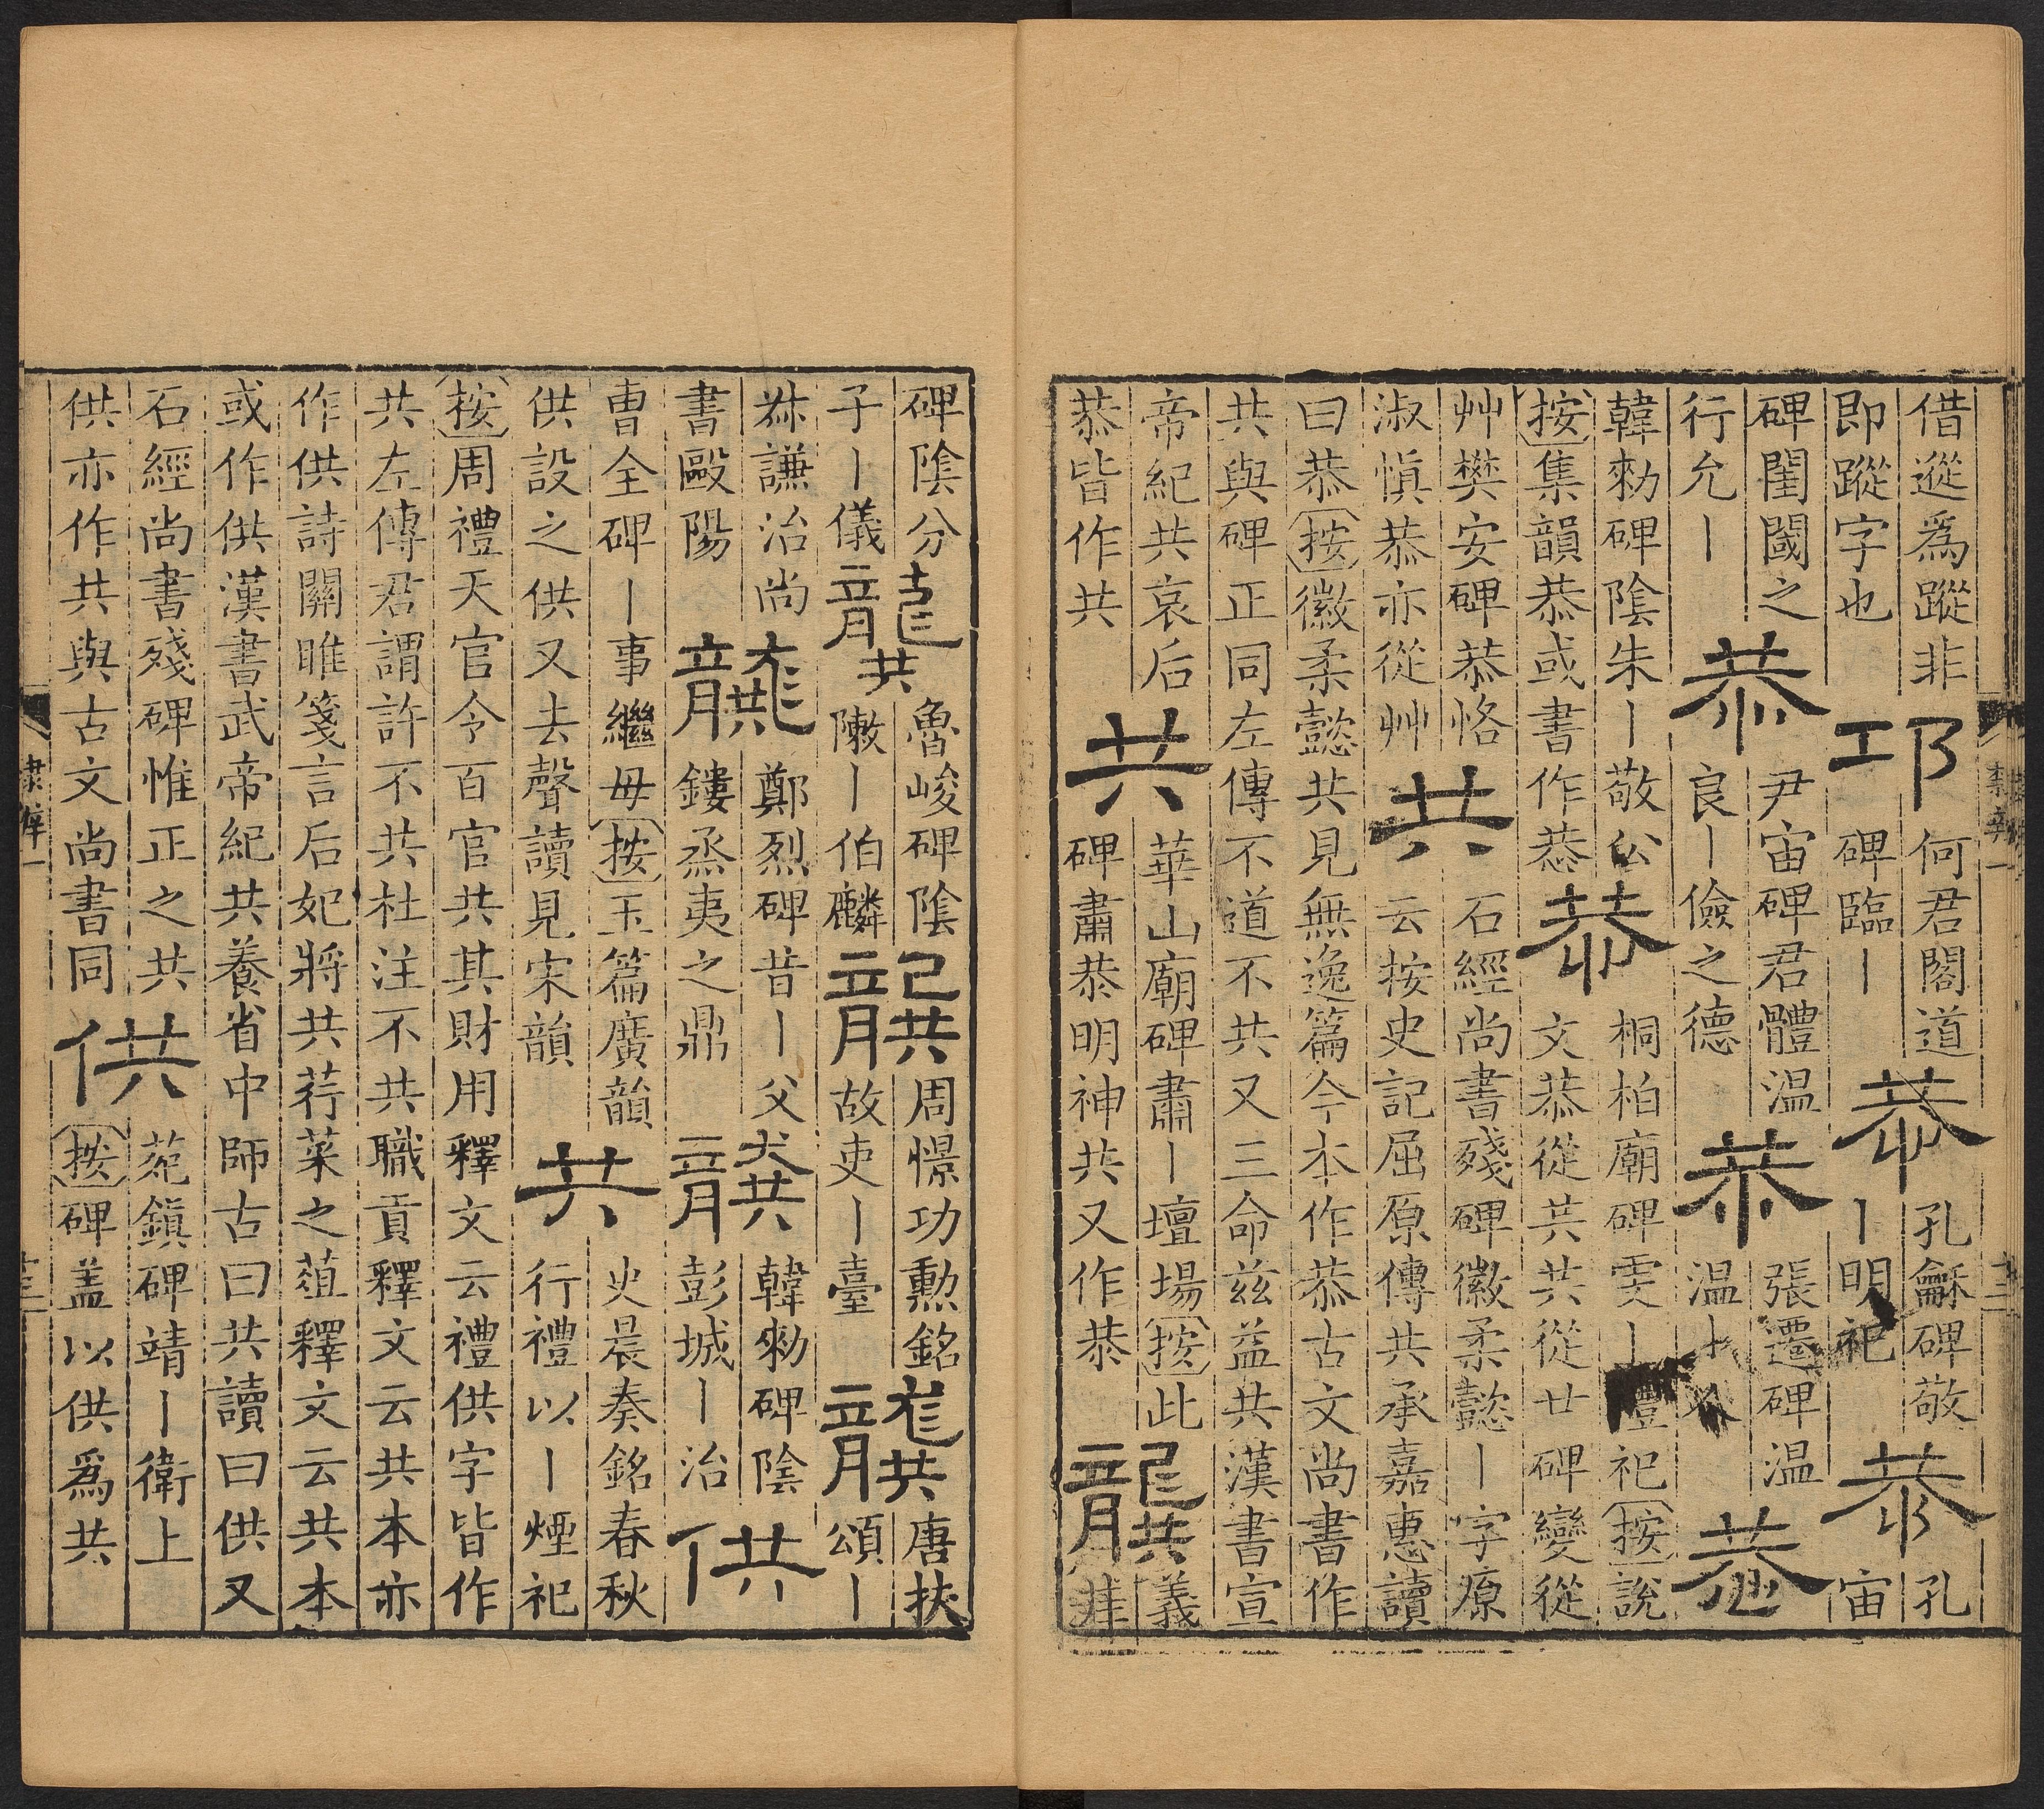 借遳爲蹤非
即蹤字也
邛
何君閣道
碑臨丨
恭
孔龢碑敬
丨明祀
恭
孔
宙
碑閨閫之
行允丨
恭
尹宙碑君體温
良丨儉之德
恭
張遷碑温
温丨
恭
韓勑碑陰朱丨敬公
按集韻恭或書作㳟
恭
桐柏廟碑雯丨禮祀按說
文恭從共共從廿碑變從
艸樊安碑恭恪
淑慎恭亦從艸
共
石經尚書殘碑徽柔懿丨字原
云按史記屈原傳共承嘉惠讀
曰恭按徽柔懿共見無逸篇今本作恭古文尚書作
共與碑正同左傳不道不共又三命兹益共漢書宣
帝紀共哀后
恭皆作共
共
華山廟碑肅丨壇場按此
碑肅恭明神共又作恭
龔
義
井
隸辨一
十三
碑陰分
子丨儀
龔
魯峻碑陰
敶丨伯麟
龔
周憬功勳銘
故吏丨臺
龔
唐扶
頌丨
恭謙治尚
書歐陽
龔
鄭烈碑昔丨父
鏤烝夷之鼎
龔
韓勑碑陰
彭城丨治
供
曹全碑丨事繼母按玉篇廣韻
供設之供又去聲讀見宋韻
共
史晨奏銘春秋
行禮以丨煙祀
按周禮天官令百官共其財用釋文云禮供字皆作
共左傳君謂許不共杜注不共職貢釋文云共本亦
作供詩關雎箋言后妃將共荇菜之葅釋文云共本
或作供漢書武帝紀共養省中師古曰共讀曰供又
石經尚書殘碑惟正之共
供亦作共與古文尚書同
供
苑鎮碑靖丨衛上
按碑盖以供爲共
隸辨一